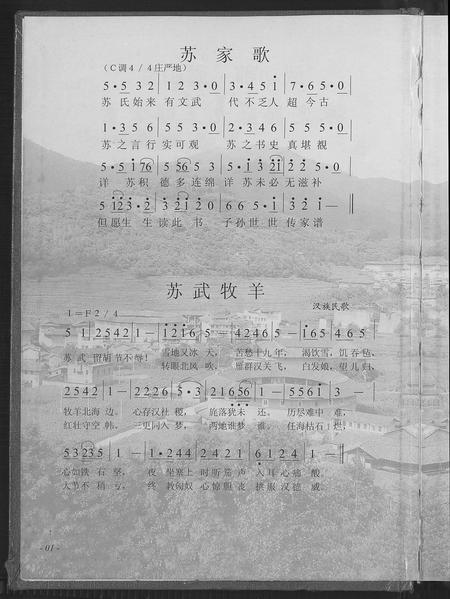 苏家歌
（C调4/4庄严地）
5·5 3 2 1 2 3·0 3·4 5 i 7·6 5·0
苏 氏始来 有文武 代不乏人 超今古
1·3 5 6 5 4 5·0 2·3 4 6 5 5·0
苏之言行 实可观 苏之书史 真堪观
5·5 i 7 6 5 5 6 5 3 5·i 3 2 i 2 2 5·0
详 苏积 德多连绵 详苏未必 无滋补
5 i 2 3·2 3 2 i 2 0 6 6 5·i 3 2 i —
但愿生 生 读此 书 子孙世世 传家谱
苏武牧羊
1=F2/4 汉族民歌
5 1 2 5 4 2 1 — i 2 i 6 5 — 4 2 4 6 5 — i 6 5 4 6 5
苏武留胡节不辱！ 雪地又冰天， 苦愁十九年， 渴饮雪，饥吞毡，
转眼北风吹， 雁群汉关飞， 白发娘，望儿归，
2 5 4 2 1 — 2 2 2 6 5·3 2 1 6 5 6 1 — 5 5 6 i 3 —
牧羊北海边。 心存汉社稷， 旄落犹未还， 历尽难中难，
红妆守空帏， 三更同入梦， 两地谁梦谁。 任海枯石烂，
5 3 2 3 5 1 — 1·2 4 4 2 5 4 4 2 6 1 2 4 1 —
心如铁石坚， 夜坐塞上时听笳声入耳心痛酸。
大节不稍亏， 终教匈奴心惊胆丧拱服汉德威。
- 01 -